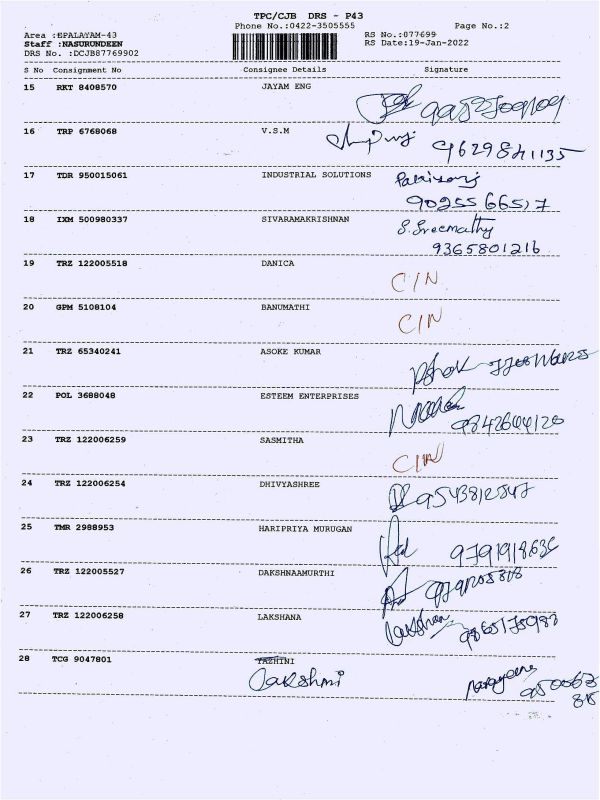 TPC/CJB DRS - P43
Phone No.:0422-3505555 Page No.:2
Area :EPALAYAM-43 RS No.:077699
Staff :NASURUNDEEN RS Date:19-Jan-2022
DRS No. :DCJB87769902
S No Consignment No Consignee Details Signature
15 RKT 8408570 JAYAM ENG
16 TRP 6768068 V.S.M
9629841135
17 TDR 950015061 INDUSTRIAL SOLUTIONS
9025566517
18 IXM 500980337 SIVARAMAKRISHNAN S. Sreemathy
9365801216
19 TRZ 122005518 DANICA C/N
20 GPM 5108104 BANUMATHI C/N
21 TRZ 65340241 ASOKE KUMAR
22 POL 3688048 ESTEEM ENTERPRISES
9842644120
23 TRZ 122006259 SASMITHA C/N
24 TRZ 122006254 DHIVYASHREE 9543812847
25 TMR 2988953 HARIPRIYA MURUGAN
9791918636
26 TRZ 122005527 DAKSHNAAMURTHI
27 TRZ 122006258 LAKSHANA Lakshana
28 TCG 9047801 YAZHINI
Lakshmi